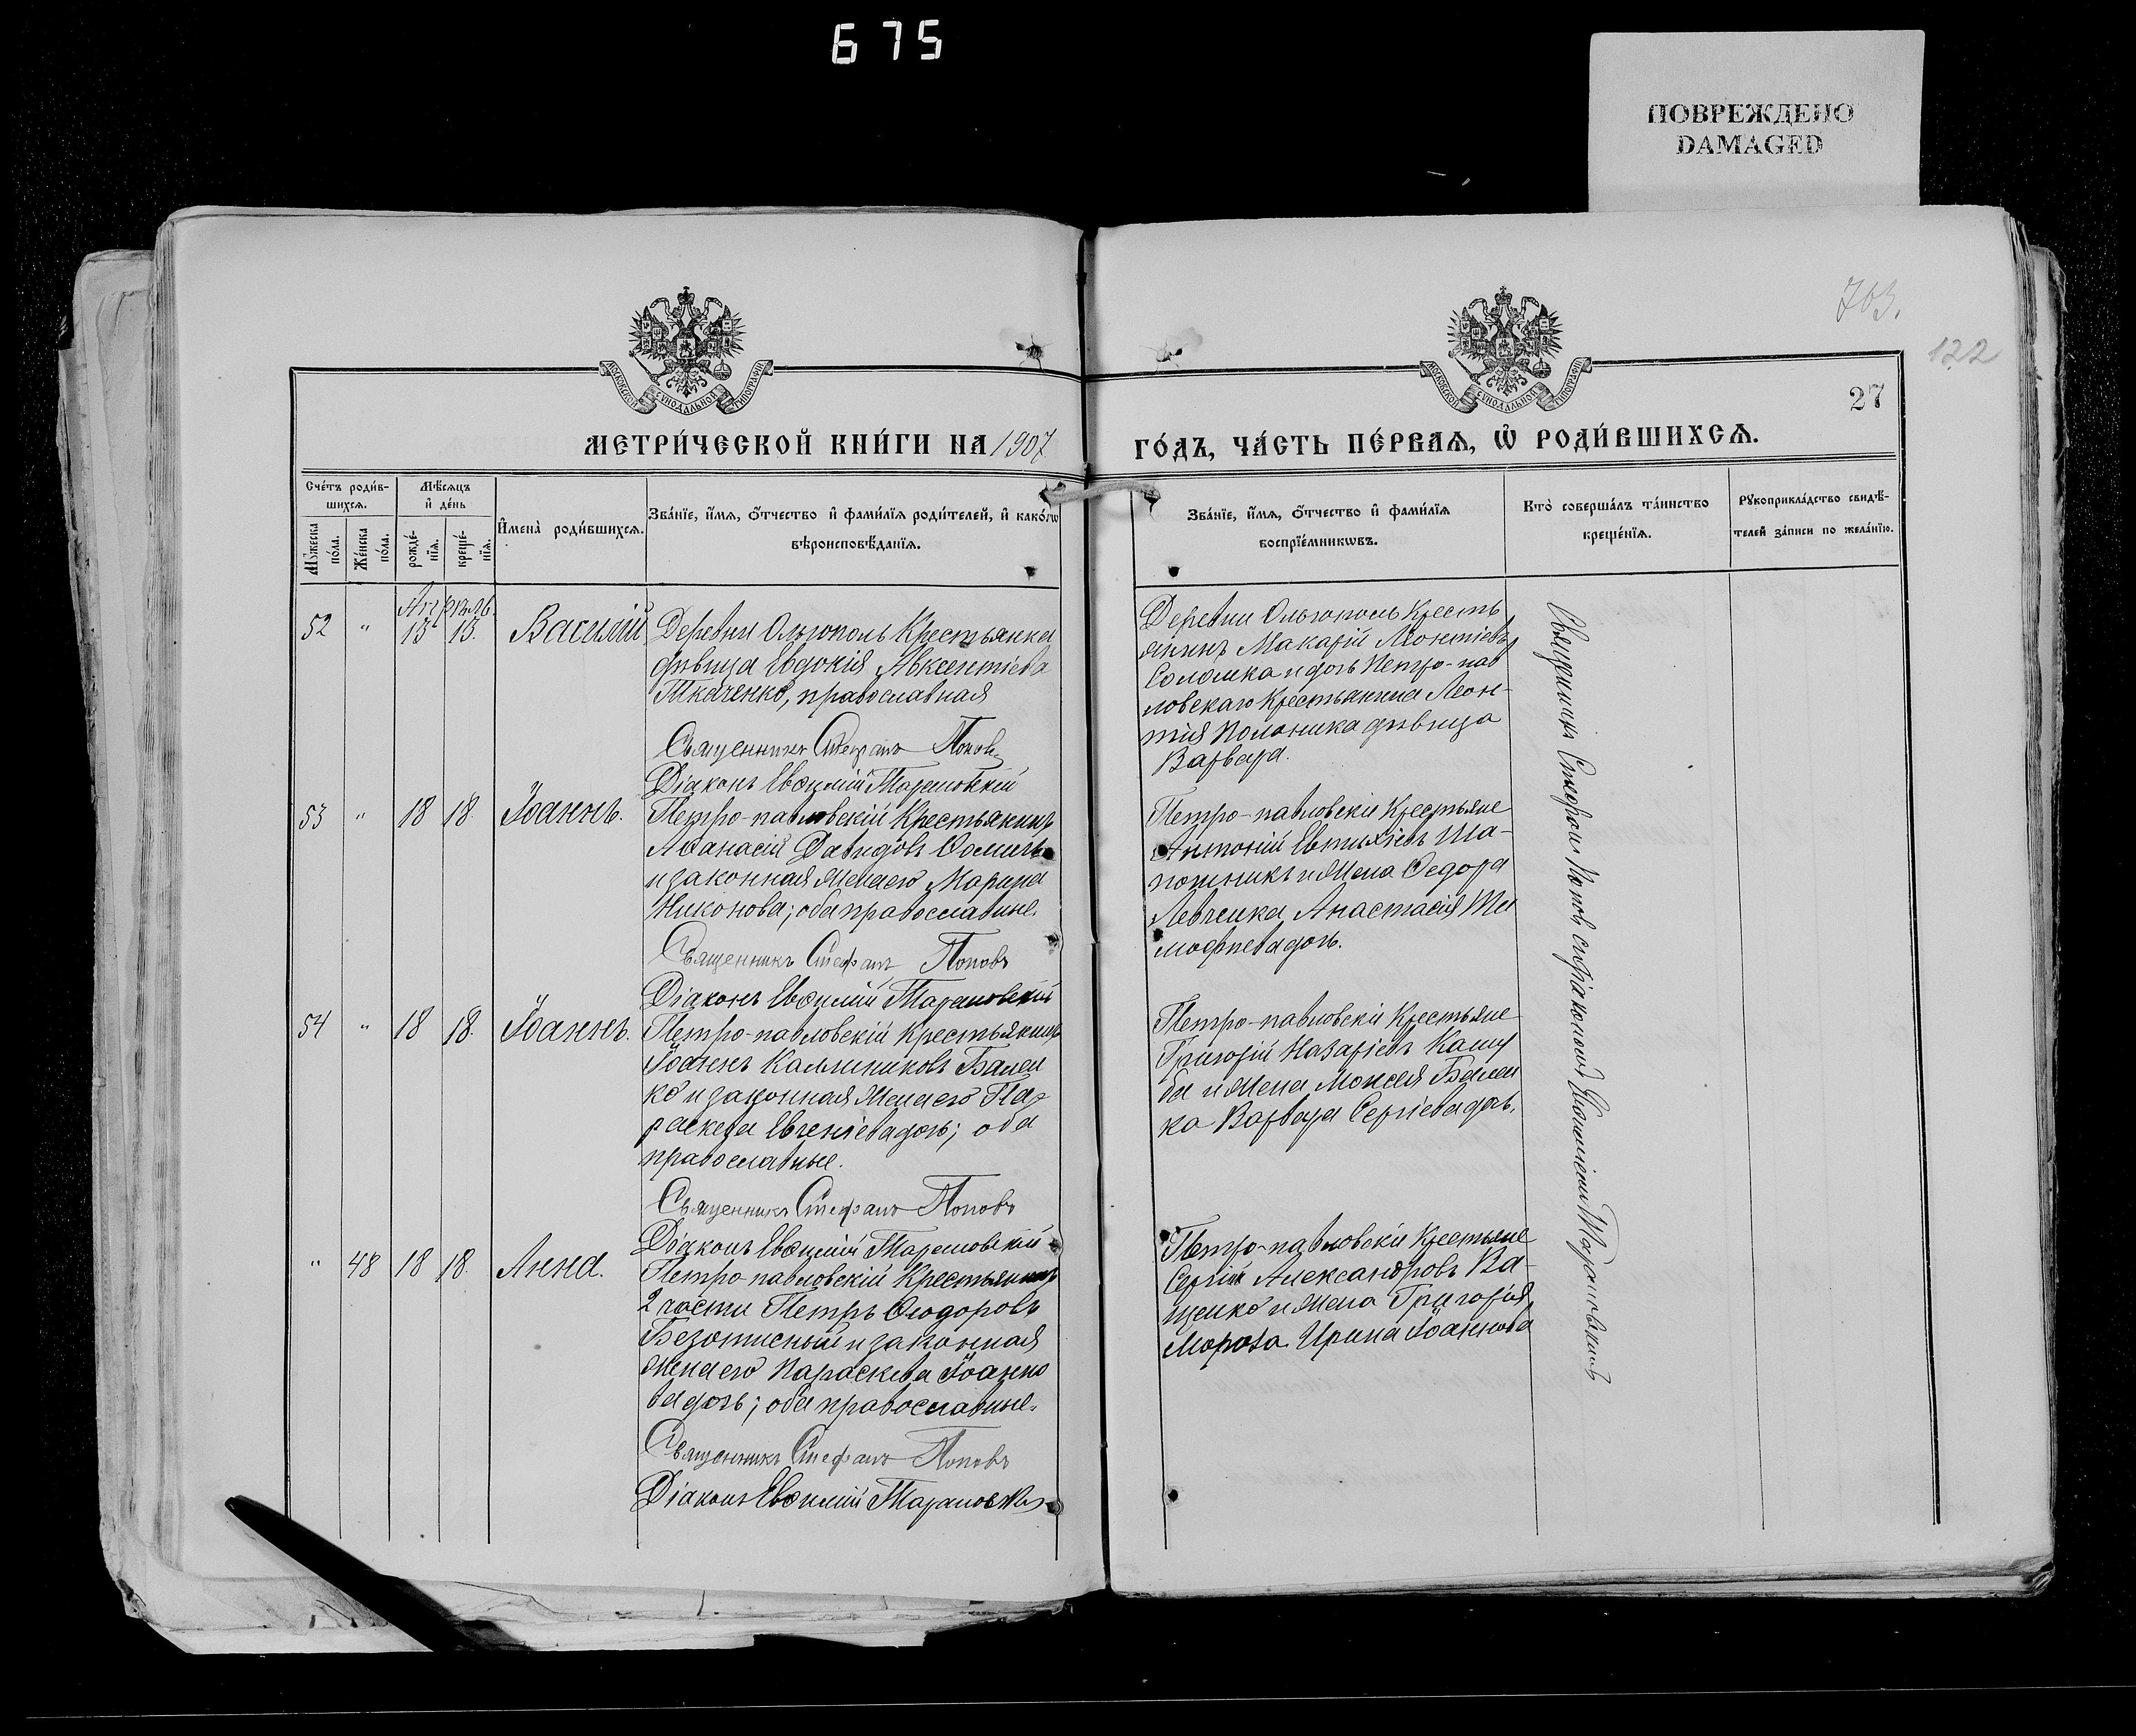 675
ПОВРЕЖДЕНО
DAMAGED
703.
122
27
МОСКОВСКОЙ СѴНОДАЛЬНОЙ ТИПОГРАФІИ
МОСКОВСКОЙ СѴНОДАЛЬНОЙ ТИПОГРАФІИ
МЕТРИ́ЧЕСКОЙ КНИ́ГИ НА 1907
ГО́ДЪ, ЧА́СТЬ ПЕ́РВАѦ, Ѡ҆ РОДИ́ВШИХСѦ.
Сче́тъ роди́в-
шихсѧ.
Мꙋ́жеска по́ла.
Же́нска по́ла.
Мѣ́сѧцъ
и҆ де́нь
рожде́-
нїѧ.
креще́-
нїѧ.
И҆мена̀ роди́вшихсѧ.
Зва́нїе, и҆́мѧ, ѻ҆́тчество и҆ фами́лїѧ роди́телей, и҆ како́гѡ
вѣроисповѣ́данїѧ.
Зва́нїе, и҆́мѧ, ѻ҆́тчество и҆ фами́лїѧ
воспрїе́мникѡвъ.
Кто̀ соверша́лъ та́инство
креще́нїѧ.
Рꙋкоприкла́дство свидѣ́-
телей за́писи по жела́нїю.
Апрѣль.
52 " 15 15. Василій
Деревни Ольгополь Крестьянка
дѣвица Евдокія Авксентіева
Ткаченко, православная
Священникъ Стефанъ Поповъ
Діаконъ Евѳимій Тарановскій
Деревни Ольгополь Кресть
янинъ Макарій Леонтіевъ
Соломка и дочь Петро-пав
ловскаго Крестьянина Леон-
тія Полоника дѣвица
Варвара.
53 " 18 18. Іоаннъ.
Петро-павловскій Крестьянинъ
Аѳанасій Давидовъ
и законная жена его Марина
Никонова; оба православные.
Священникъ Стефанъ Поповъ
Діаконъ Евѳимій Тарановскій
Петро-павловскіе Крестьяне
Антоній Евтихіевъ Ша-
пошникъ и жена Ѳедора
Левченка Анастасія Ти
мофѣева дочь.
54 " 18 18. Іоаннъ.
Петро-павловскій Крестьянинъ
Іоаннъ Каллиниковъ Балан
ко и законная жена его Па-
раскева Евгеніева дочь; оба
православные.
Священникъ Стефанъ Поповъ
Діаконъ Евѳимій Тарановскій
Петро-павловскіе Крестьяне
Григорій Назаріевъ Кашу
ба и жена Моисея Балан
ка Варвара Сергіева дочь.
" 48 18 18. Анна.
Петро-павловскій Крестьянинъ
2 части Петръ Ѳеодоровъ
и законная
жена его Параскева Іоанно
ва дочь; оба православные.
Священникъ Стефанъ Поповъ
Діаконъ Евѳимій Тарановскій
Петро-павловскіе Крестьяне
Сергій Александровъ Ва-
щенко и жена Григорія
Мороза Ирина Іоаннова
Священникъ Стефанъ Поповъ съ діакономъ Евѳиміемъ Тарановскимъ